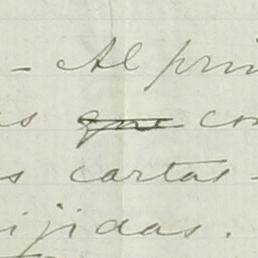 - Al prin
s que con
s cartas -
ijidas.